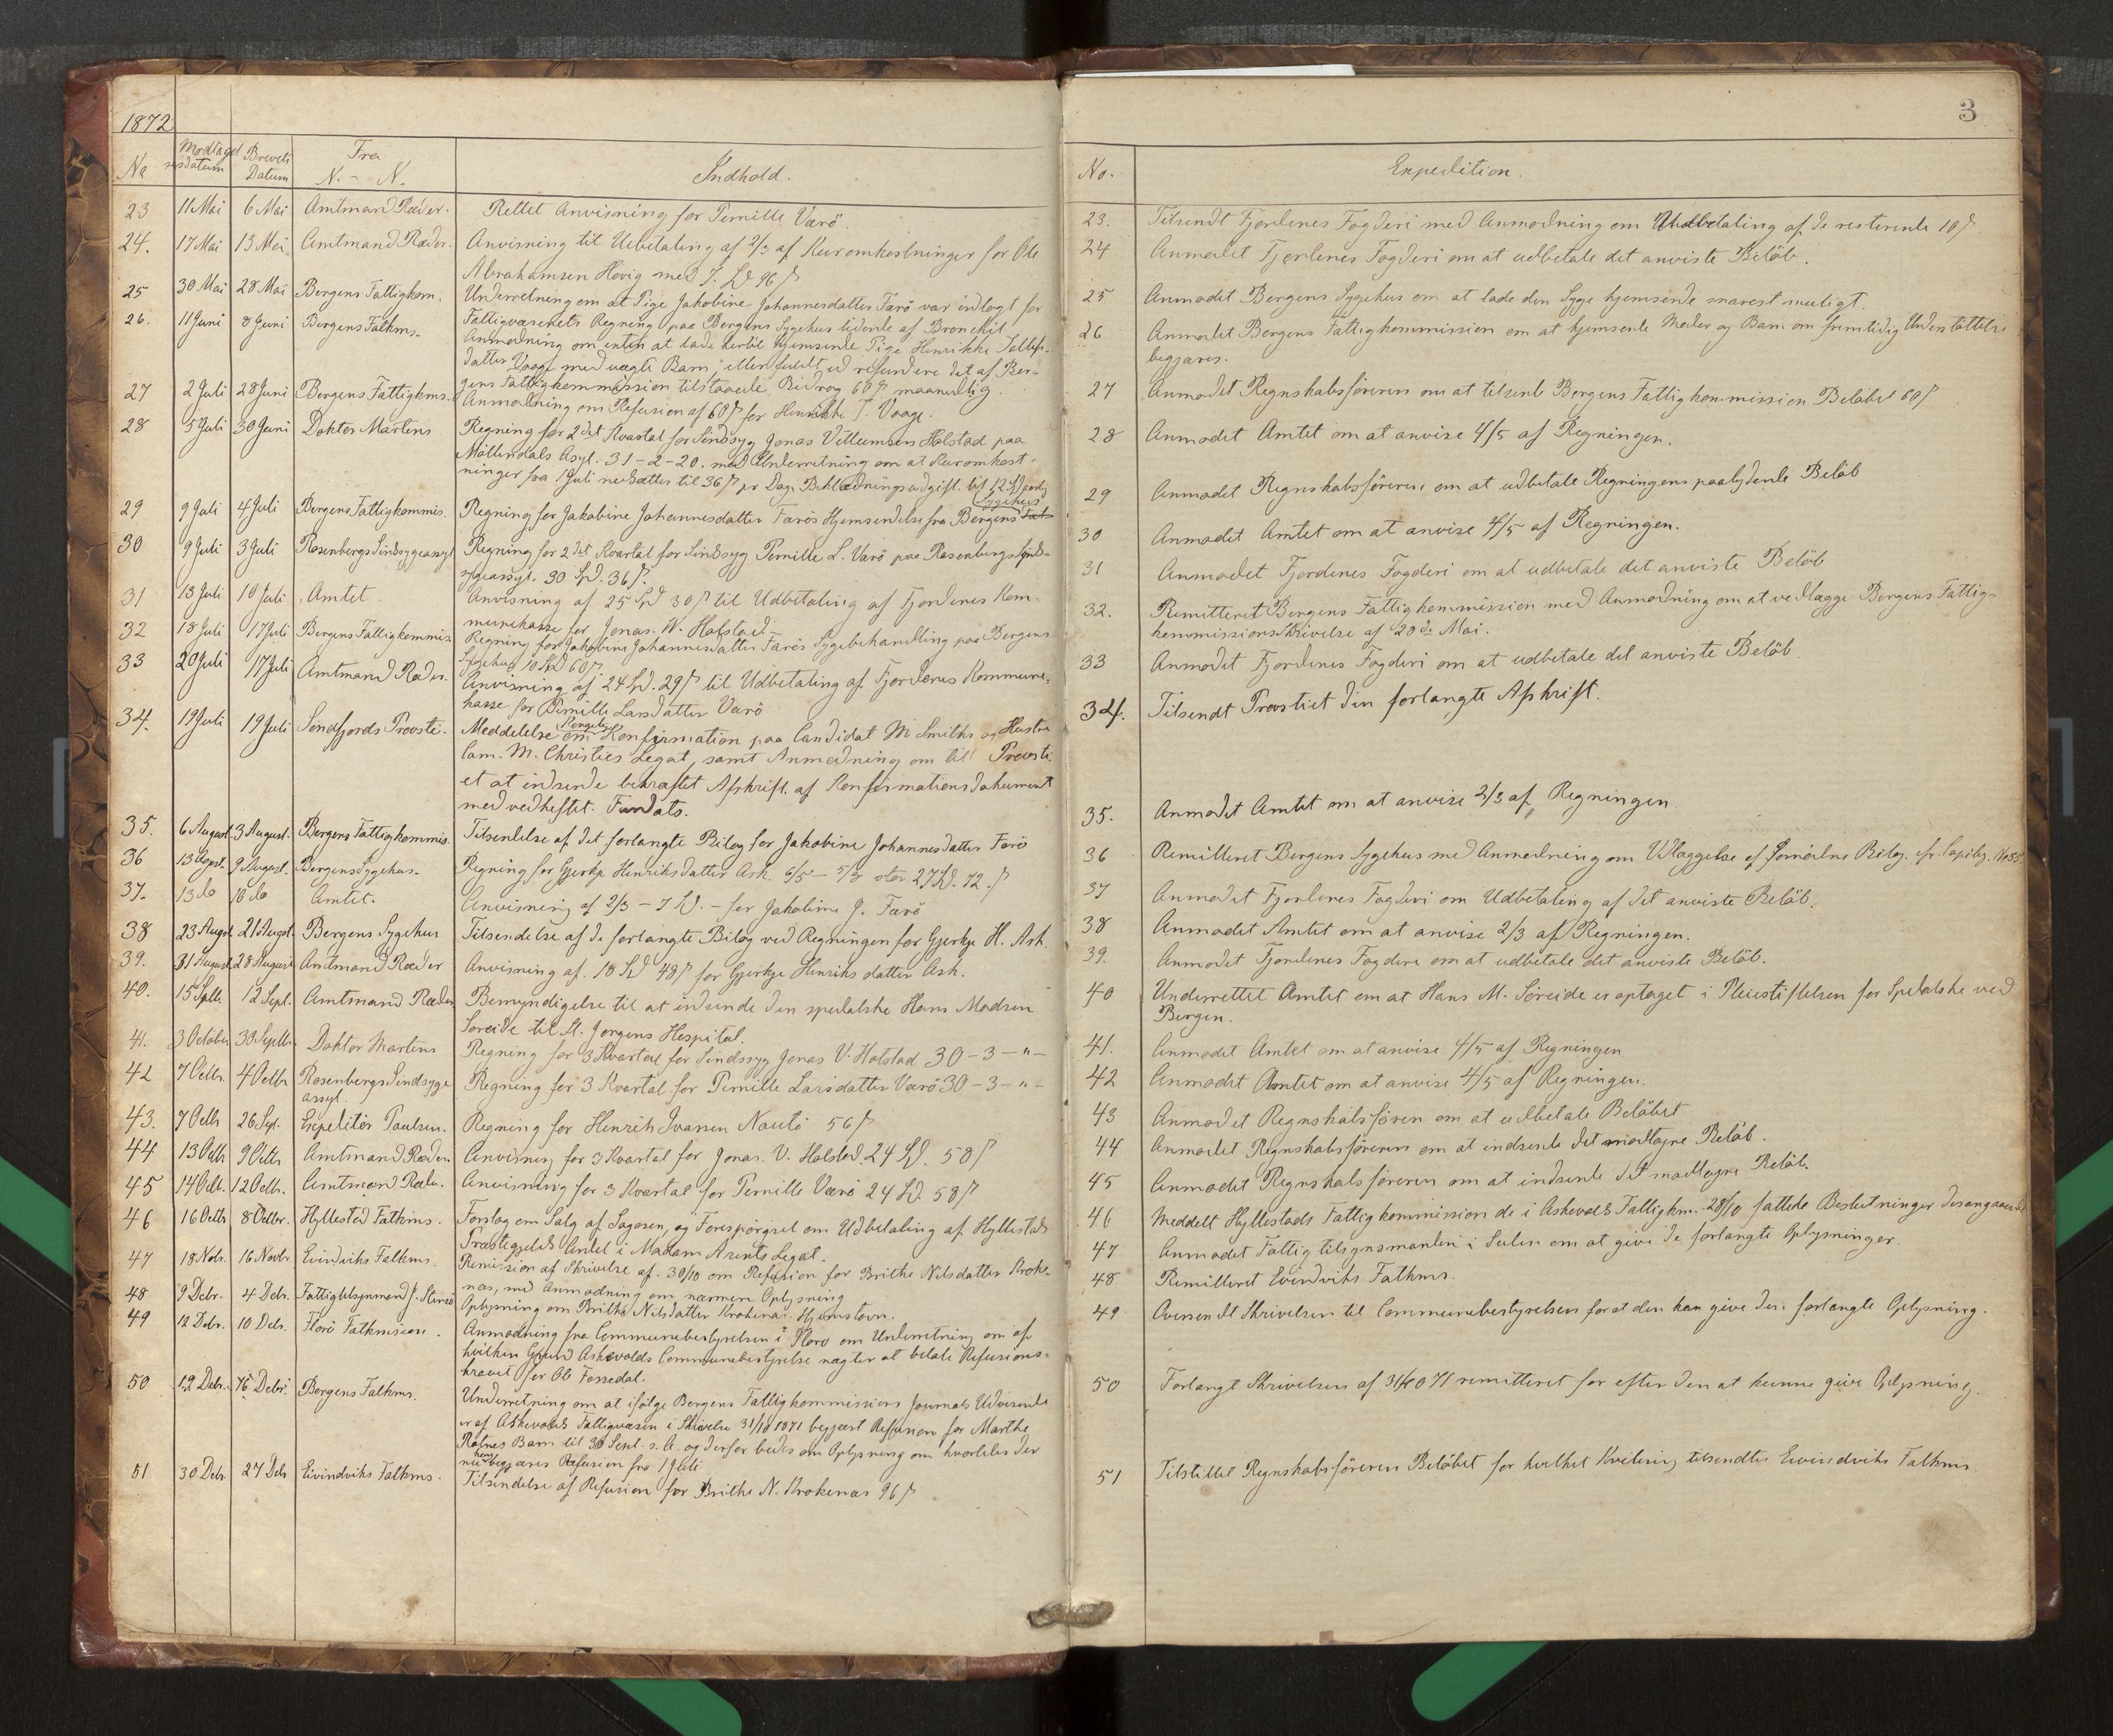 1872
No Modtagelsesdatum Brevets Datum Fra N. - N. Indhold.
23 11 Mai 6 Mai Amtmand Ræder. Rettet Anvisning for Pernille Værö.
24. 17 Mai 13 Mai Amtmand Ræder. Anvisning til Udbetaling af 2/3 af Kuromkostninger for Ole
Abrahamsen Høvig med 7. Sp 96 ß
25 30 Mai 28 Mai Bergens Fattigkom. Underretning om at Pige Jakobine Johannesdatter Færö var indlagt for
Fattigvæsenets Regning paa Bergens Sygehus lidende af Bronckit.
26. 11 Juni 8 Juni Bergens Fatkms. Anmodning om enten at lade hertil hjemsende Pige Henrikke
datter Vaage med uægte Barn, eller refundere det af Ber-
gens Fattigkommission tilstaaede Bidrag 60 ß maanedlig.
27 2 Juli 28 Juni Bergens Fattigkms. Anmodning om Refusion af 60 ß for Henrikke T. Vaage.
28 5 Juli 30 Juni Doktor Martens Regning for 2det Kvartal for Sindsyg Jonas Villumsen Hofstad paa
Möllendals Asyl. 31-2-20. med Underretning om at Kuromkost-
ninger fra 1 Juli nedsættes til 36 ß pr Dag. Beklædningsudgift. til 12 Sp
29 9 Juli 4 Juli Bergens Fattigkommis. Regning for Jakobine Johannesdatter Færös Hjemsendelse fra Bergens Sygehus
30 9 Juli 3 Juli Rosenbergs Sindsygeasyl Regning for 2det Kvartal for Sindsyg Pernille L. Værö paa Rosenbergs Sinds-
sygeasyl. 30 Sp. 36 ß.
31 13 Juli 10 Juli Amtet Anvisning af 25 Sp 30 ß til Udbetaling af Fjordenes Kom-
munekasse for Jonas. W. Hofstad.
32 18 Juli 17 Juli Bergens Fattigkommis Regning for Jakobine Johannesdatter Færös Sygebehandling paa Bergens
Sygehus 10 Sp 60 ß
33 20 Juli 17 Juli Amtmand Ræder. Anvisning af 24 Sp. 29 ß til Udbetaling af Fjordenes Kommune-
kasse for Pernille Larsdatter Værö
34. 19 Juli 19 Juli Söndfjords Provsti. Meddelelse om Kongelig Konfirmation paa Candidat M Smiths og Hustru
Cam. M. Christies Legat, samt Anmodning om til Provsti
et at indsende bekræftet Afskrift. af Konfirmationsdokument
med vedheftet. Fundats.
35. 6 August. 3 August. Bergens Fattigkommis. Tilsendelse af det forlangte Bilag for Jakobine Johannesdatter Færö
36 13 Augst. 9 August. Bergens Sygehus. Regning for Gjertje Henriksdatter Ask. 6/5 - 3/8 stor 27 Sp. 72. ß
37. 13 do 10 do Amtet. Anvisning af 2/3 - 7 Sp. - for Jakobine J. Færö
38 23 Augst. 21 Augst. Bergens Sygehus Tilsendelse af de forlangte Bilag ved Regningen for Gjertje H. Ask.
39. 31 August 28 August Amtmand Ræder Anvisning af. 18 Sp 48 ß for Gjertje Hinriksdatter Ask.
40. 15 Septb. 12 Sept. Amtmand Ræder Bemyndigelse til at indsende den spedalske Hans Madsen
Söreide til St. Jørgens Hospital.
41. 3 October 30 Septb. Doktor Martens Regning for 3 Kvartal for Sindssyg Jonas V. Hofstad 30-3-"-
42 7 Octbr. 4 Octbr Rosenbergs Sindsyge Regning for 3 Kvartal for Pernille Larsdatter Værö 30-3-"-
assyl.
43. 7 Octb 26 Sept. Expeditör Paulsen. Regning for Henrik Ivarsen Nautö 56 ß
44 13 Octb 9 Octb Amtmand Ræder. Anvisning for 3 Kvartal for Jonas. V. Hofstad. 24 Sp. 58 ß
45 14 Octb. 12 Octb. Amtmand Ræder. Anvisning for 3 Kvartal for Pernille Værö 24 Sp. 58 ß
46 16 Octb 8 Octbr. Hyllestad Fatkms. Forslag om Salg af Sagosen, og Forespörgsel om Udbetaling af Hyllestads
Præstegjelds Antel i Madam Arents Legat.
47 18 Novb. 16 Novb. Evindviks Fatkms. Remission af Skrivelse af. 30/10 om Refusion for Brithe Nilsdatter Krok-
næs, med Anmodning om nærmere Oplysning
48 9 Debr. 4 Debr. Fattigtilsynsmand J. Oplysning om Brithe Nilsdatter Krokenæs Hjemstavn.
49 12 Debr. 10 Debr. Florö Fatkmsion. Anmodning fra Communebestyrelsen i Florö om Underretning om af
hvilken Grund Askevolds Communebestyrelse nægter at betale Refusions-
kravet for Ole Fossedal.
50 19 Debr. 16 Debr. Bergens Fatkms. Underretning om at ifölge Bergens Fattigkommissions Journals Udvisende
er af Askevolds Fattigvæsen i Skrivelse 31/10 1871 begjært Refusion for Marthe
Barn til 30 Sept. s. A. og derfor bedes om Oplysning om hvorledes der
nu begjæres Refusion fra 1 Juli
51 30 Debr 27 Deb Eivindviks Fatkms. Tilsendelse af Refusion for Brithe N. Krokenæs 96 ß
3
No. Expedition.
23. Tilsendt Fjordenes Fogderi med Anmodning om Udbetaling af de resterende 10 ß.
24 Anmodet Fjordenes Fogderi om at udbetale det anviste Belöb.
25 Anmodet Bergens Sygehus om at lade den Syge hjemsende snarest muligt.
26 Anmodet Bergens Fattigkommission om at hjemsende Moder og Barn om fremtidig Understöttelse
begjæres.
27 Anmodet Regnskabsföreren om at tilsende Bergens Fattigkommission Belöbet 60 ß
28 Anmodet Amtet om at anvise 4/5 af Regningen.
29 Anmodet Regnskabsföreren om at udbetale Regningens paalydende Belöb
30 Anmodet Amtet om at anvise 4/5 af Regningen.
31 Anmodet Fjordenes Fogderi om at udbetale det anviste Belöb
32. Remitteret Bergens Fattigkommission med Anmodning om at vedlægge Bergens Fattig-
kommissions Skrivelse af 28de Mai.
33 Anmodet Fjordenes Fogderi om at udbetale det anviste Belöb.
34. Tilsendt Provstiet den forlangte Afskrift.
35. Anmodet Amtet om at anvise 2/3 af Regningen.
36 Remitteret Bergens Sygehus med Anmodning om Vedlæggelse af Bilag. cfr. Copibg. No 55.
37 Anmodet Fjordenes Fogderi om Udbetaling af det anviste Belöb.
38 Anmodet Amtet om at anvise 2/3 af Regningen.
39. Anmodet Fjordenes Fogderi om at udbetale det anviste Belöb.
40 Underrettet Amtet om at Hans M. Söreide er optaget i Pleiestiftelsen for Spedalske ved
Bergen.
41. Anmodet Amtet om at anvise 4/5 af Regningen
42 Anmodet Amtet om at anvise 4/5 af Regningen.
43 Anmodet Regnskabsfören om at udbetale Belöbet
44 Anmodet Regnskabsföreren om at indsende det modtagne Belöb.
45 Anmodet Regnskabsföreren om at indsende det modtagne Belöb.
46 Meddelt Hyllestads Fattigkommission de i Askevolds Fattigkm. 28/10 fattede Beslutninger desangaaende
47 Anmodet Fattigtilsynsmanden i Sulen om at give de forlangte Oplysninger.
48 Remitteret Evindviks Fatkms.
49 Oversendt Skrivelsen til Communebestyrelsen for at den kan give den forlangte Oplysning.
50 Forlangt Skrivelsen af 31/10 71 remitteret for efter den at kunne give Oplysning.
51 Tilstillet Regnskabsföreren Belöbet for hvilket Kvitering tilsendtes Eivindviks Fatkms.